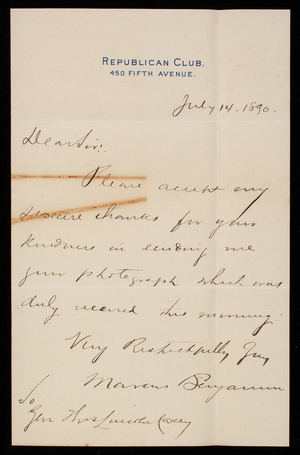 REPUBLICAN CLUB.
450 FIFTH AVENUE.
July 14. 1890.
Dear Sir:
Please accept my
sincere thanks for your
kindness in sending me
your photograph which was
duly received this morning.
Very Respectfully Yrs
Marcus Benjamin
To
Gen Thos Lincoln Casey